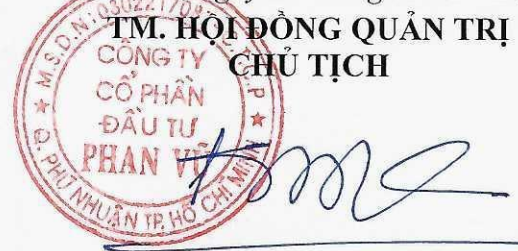 TM. HỘI ĐỒNG QUẢN TRỊ
CHỦ TỊCH
CÔNG TY
CỔ PHẦN
ĐẦU TƯ
PHAN VŨ
Q. PHÚ NHUẬN TP. HỒ CHÍ MINH